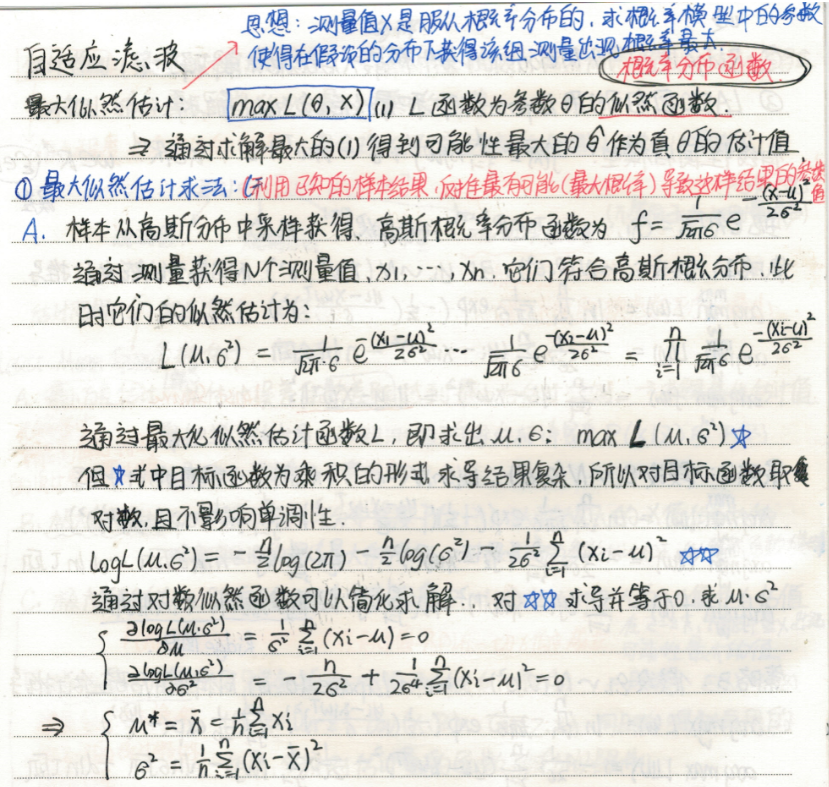 思想：测量值X是服从概率分布的，求概率模型中的参数
使得在假设的分布下获得该组测量出现概率最大.
自适应滤波
概率分布函数
最大似然估计： max L(θ, x) (1) L函数为参数θ的似然函数.
⇒ 通过求解最大的(1)得到可能性最大的θ̂作为真θ的估计值
① 最大似然估计求法：(利用已知的样本结果，反推最有可能(最大概率)导致这样结果的参数值
A. 样本从高斯分布中采样获得，高斯概率分布函数为 f = 1/√2πσ e^{-(x-u)²/2σ²}
通过测量获得N个测量值，x1,…,xn. 它们符合高斯概分布，此
时它们的似然估计为：
L(u,σ²) = 1/√2π·σ e^{-(x1-u)²/2σ²} … 1/√2πσ e^{-(x2-u)²/2σ²} = ∏_{i=1}^{n} 1/√2πσ e^{-(xi-u)²/2σ²}
通过最大化似然估计函数L，即求出u,σ： max L(u,σ²) ☆
但☆式中目标函数为乘积的形式，求导结果复杂，所以对目标函数取
对数，且不影响单调性.
logL(u,σ²) = -n/2 log(2π) - n/2 log(σ²) - 1/2σ² ∑_{i=1}^{n} (xi-u)² ☆☆
通过对数似然函数可以简化求解. 对☆☆求导并等于0，求u·σ²
{ ∂logL(u,σ²)/∂u = 1/σ² ∑_{i=1}^{n} (xi-u) = 0
∂logL(u,σ²)/∂σ² = -n/2σ² + 1/2σ⁴ ∑_{i=1}^{n} (xi-u)² = 0
⇒ { u* = x̄ = 1/n ∑_{i=1}^{n} xi
σ² = 1/n ∑_{i=1}^{n} (xi-x̄)²